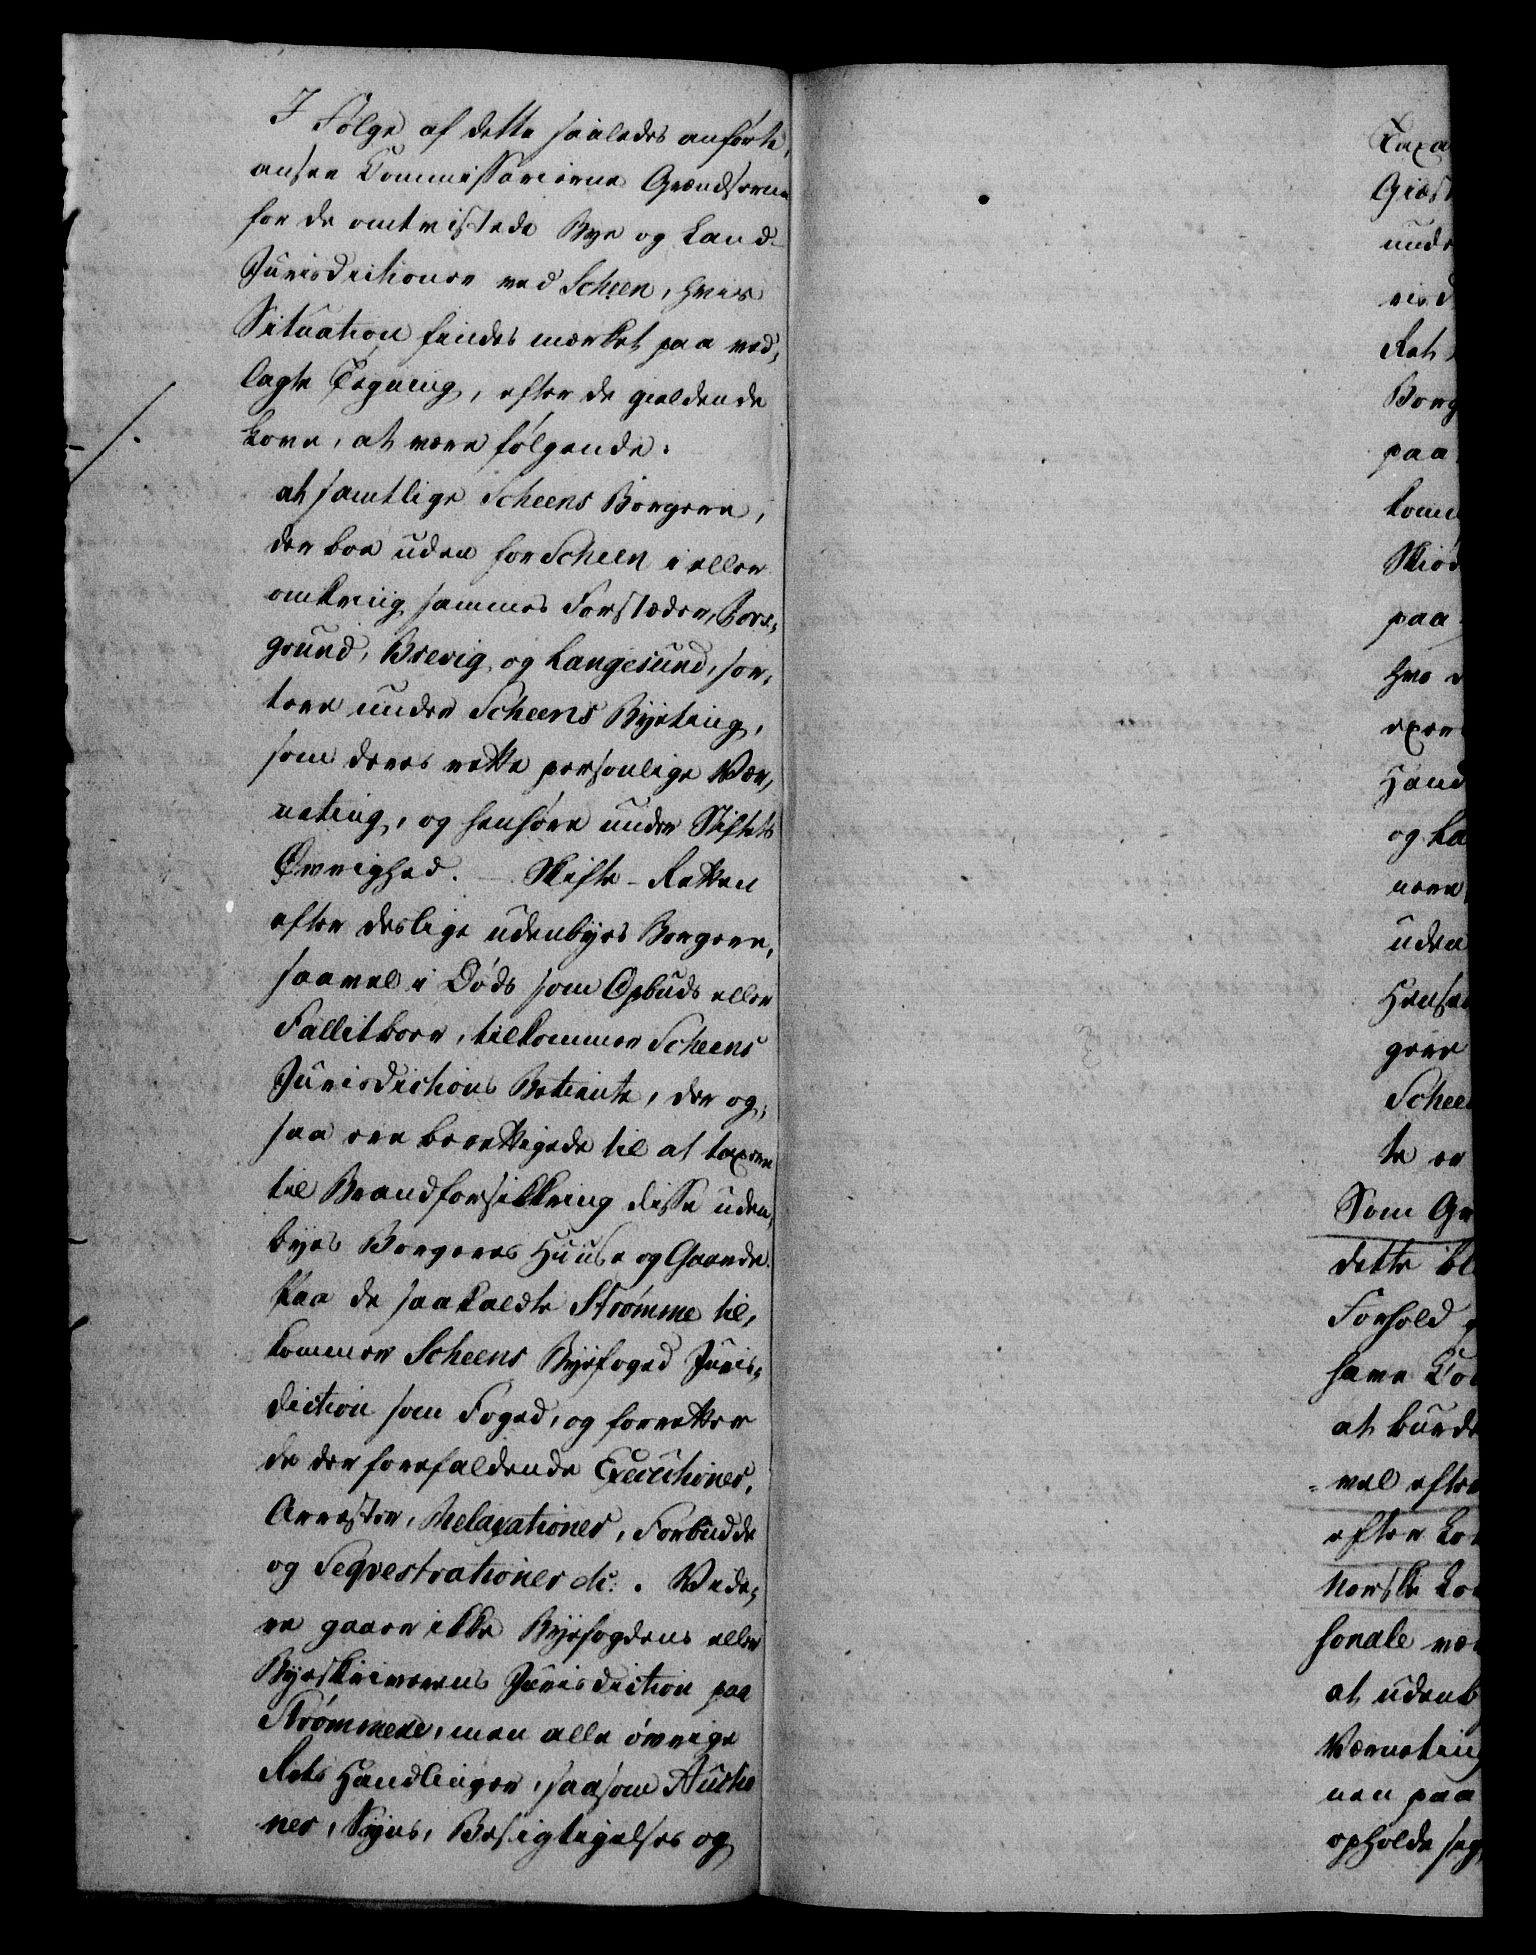 I Følge af dette saaledes anførte,
ansee Commissarierne Grændserne
for de omtvistede Bye og Land-
Jurisdictioner ved Scheen, hvis
Situation findes mærket paa ved,
lagte Tegning, efter de gieldende
Love, at være følgende:
at samtlige Scheens Borgere,
der boe uden for Scheen i eller
omkring sammes Forstæder, Pors,
grund, Brevig, og Langesund, sor,
tere under Scheens Byeting,
som deres rette personlige Vær,
neting, og henhøre under Stiftets
Øvrighed. - Skifte-Retten
efter deslige udenbyes Borgere,
saavel i Døds som Opbuds eller
Fallitboer, tilkommer Scheens
Jurisdictions Betiente, der og,
saa ere berettigede til at taxere
til Brandforsikkring disse uden,
byes Borgeres Huuse og Gaarde.
Paa de saakaldte Strømme til,
kommer Scheens Byefoged Juris,
diction som Foged, og forretter
de der forefaldende Executioner,
Arrester, Relaxationer, Forbudde
og Seqvestrationer etc. Vide,
re gaaer ikke Byefogdens eller
Byeskriverens Jurisdiction paa
Strømmene, men alle øvrige
Rets Handlinger, saasom Auctio
ner, Syns, Besigtigelses og
Taxa
Giæst
unde
vis d
Ret
Borg
paa
komm
Skiø
paa
hvo
exer
Hand
og La
nere
uden
Hense
gere
Scheen
te er
Som Gr
dette
Forhold
have Co
at burde
vel efter
efter Lo
Norske Lo
sonale væ
at udenb
Værneting
nen paa
opholde sig